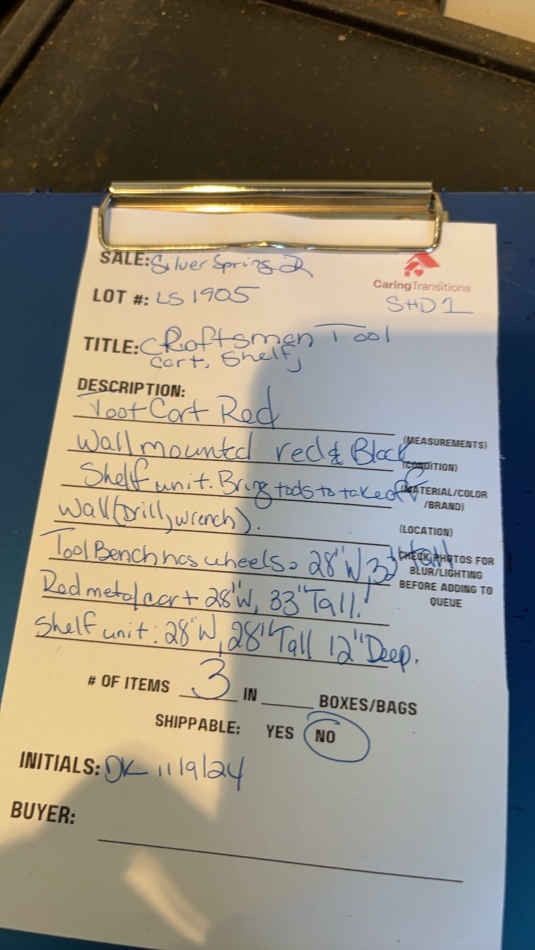 SALE: Silver Spring 2
CaringTransitions
LOT #: LS 1905
SHD 1
TITLE: CRaftsman Tool
Cart, Shelf,
DESCRIPTION:
Tool Cart Red
Wall mounted red & Black
(MEASUREMENTS)
(CONDITION)
Shelf unit. Bring tools to take off
(MATERIAL/COLOR
/BRAND)
Wall (Drill, wrench).
(LOCATION)
Tool Bench has wheels. 28"W, 33" tall
(CHECK PHOTOS FOR
BLUR/LIGHTING
BEFORE ADDING TO
QUEUE
Red metal cart 28"W, 33" Tall.
Shelf unit: 28"W, 28" Tall 12" Deep.
# OF ITEMS 3 IN BOXES/BAGS
SHIPPABLE: YES NO
INITIALS: DK 11/9/24
BUYER: